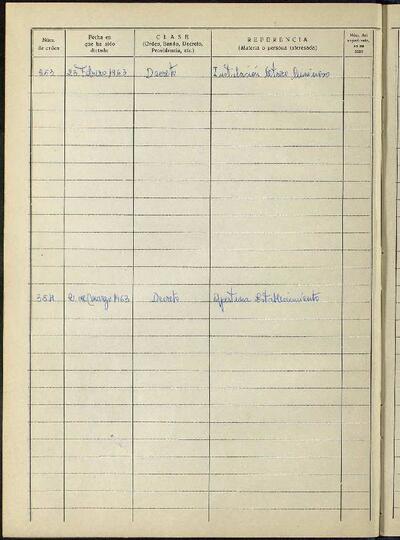 Núm. de orden
Fecha en que ha sido dictada
CLASE
(Orden, Bando, Decreto, Providencia, etc.)
REFERENCIA
(Materia o persona interesada)
Núm. del
23 Febrero 1963 Decreto Instalación luminoso
2 de Marzo 1963 Decreto Apertura Establecimiento